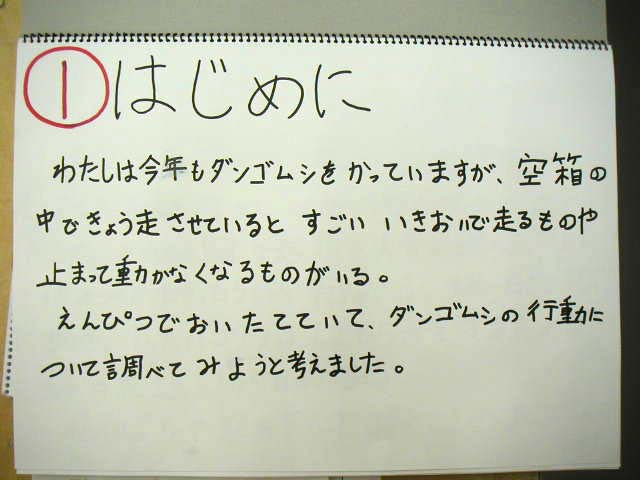 ①はじめに
わたしは今年もダンゴムシをかっていますが、空箱の
中できょう走させていると すごい いきおいで走るものや
止まって動かなくなるものがいる。
えんぴつでおいたてていて、ダンゴムシの行動に
ついて調べてみようと考えました。